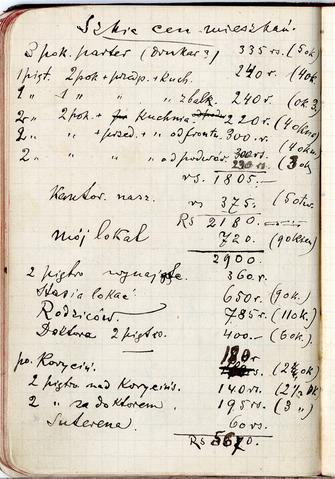 Szkic cen mieszkań.
3 pok. parter (drukar?) 335 rs. (5 ok)
1 piąt. 2 pok + przdp. + kuch. 240 r. (4 ok.
1 " 1 " " " z balk. 240 r. (ok 3)
2 " 2 pok. + kuchnia 220 r. (4 okna)
2 " " + przed. + " od frontu 300 r. (4 okna)
2 " " " " od podwór. 230 rs. (3 ok)
rs. 1805.—
Kantor. nasz. rs 375. (5 otw.
Rs 2180.—
mój lokal 720. (9 okien)
2900
2 piętro wynajęte. 360 r.
Hania lokac 650 r. (9 ok.)
Rodziców. 785 r. (11 ok.)
Doktora 2 piętro. 400.— (6 ok.)
180 r
po. Koryciń. (2 ok)
2 piętro nad Korycińs. 140 rs. (2 ok)
2 " za doktorem 195 rs. (3 ")
Suterena. 60 rs.
Rs 5670.